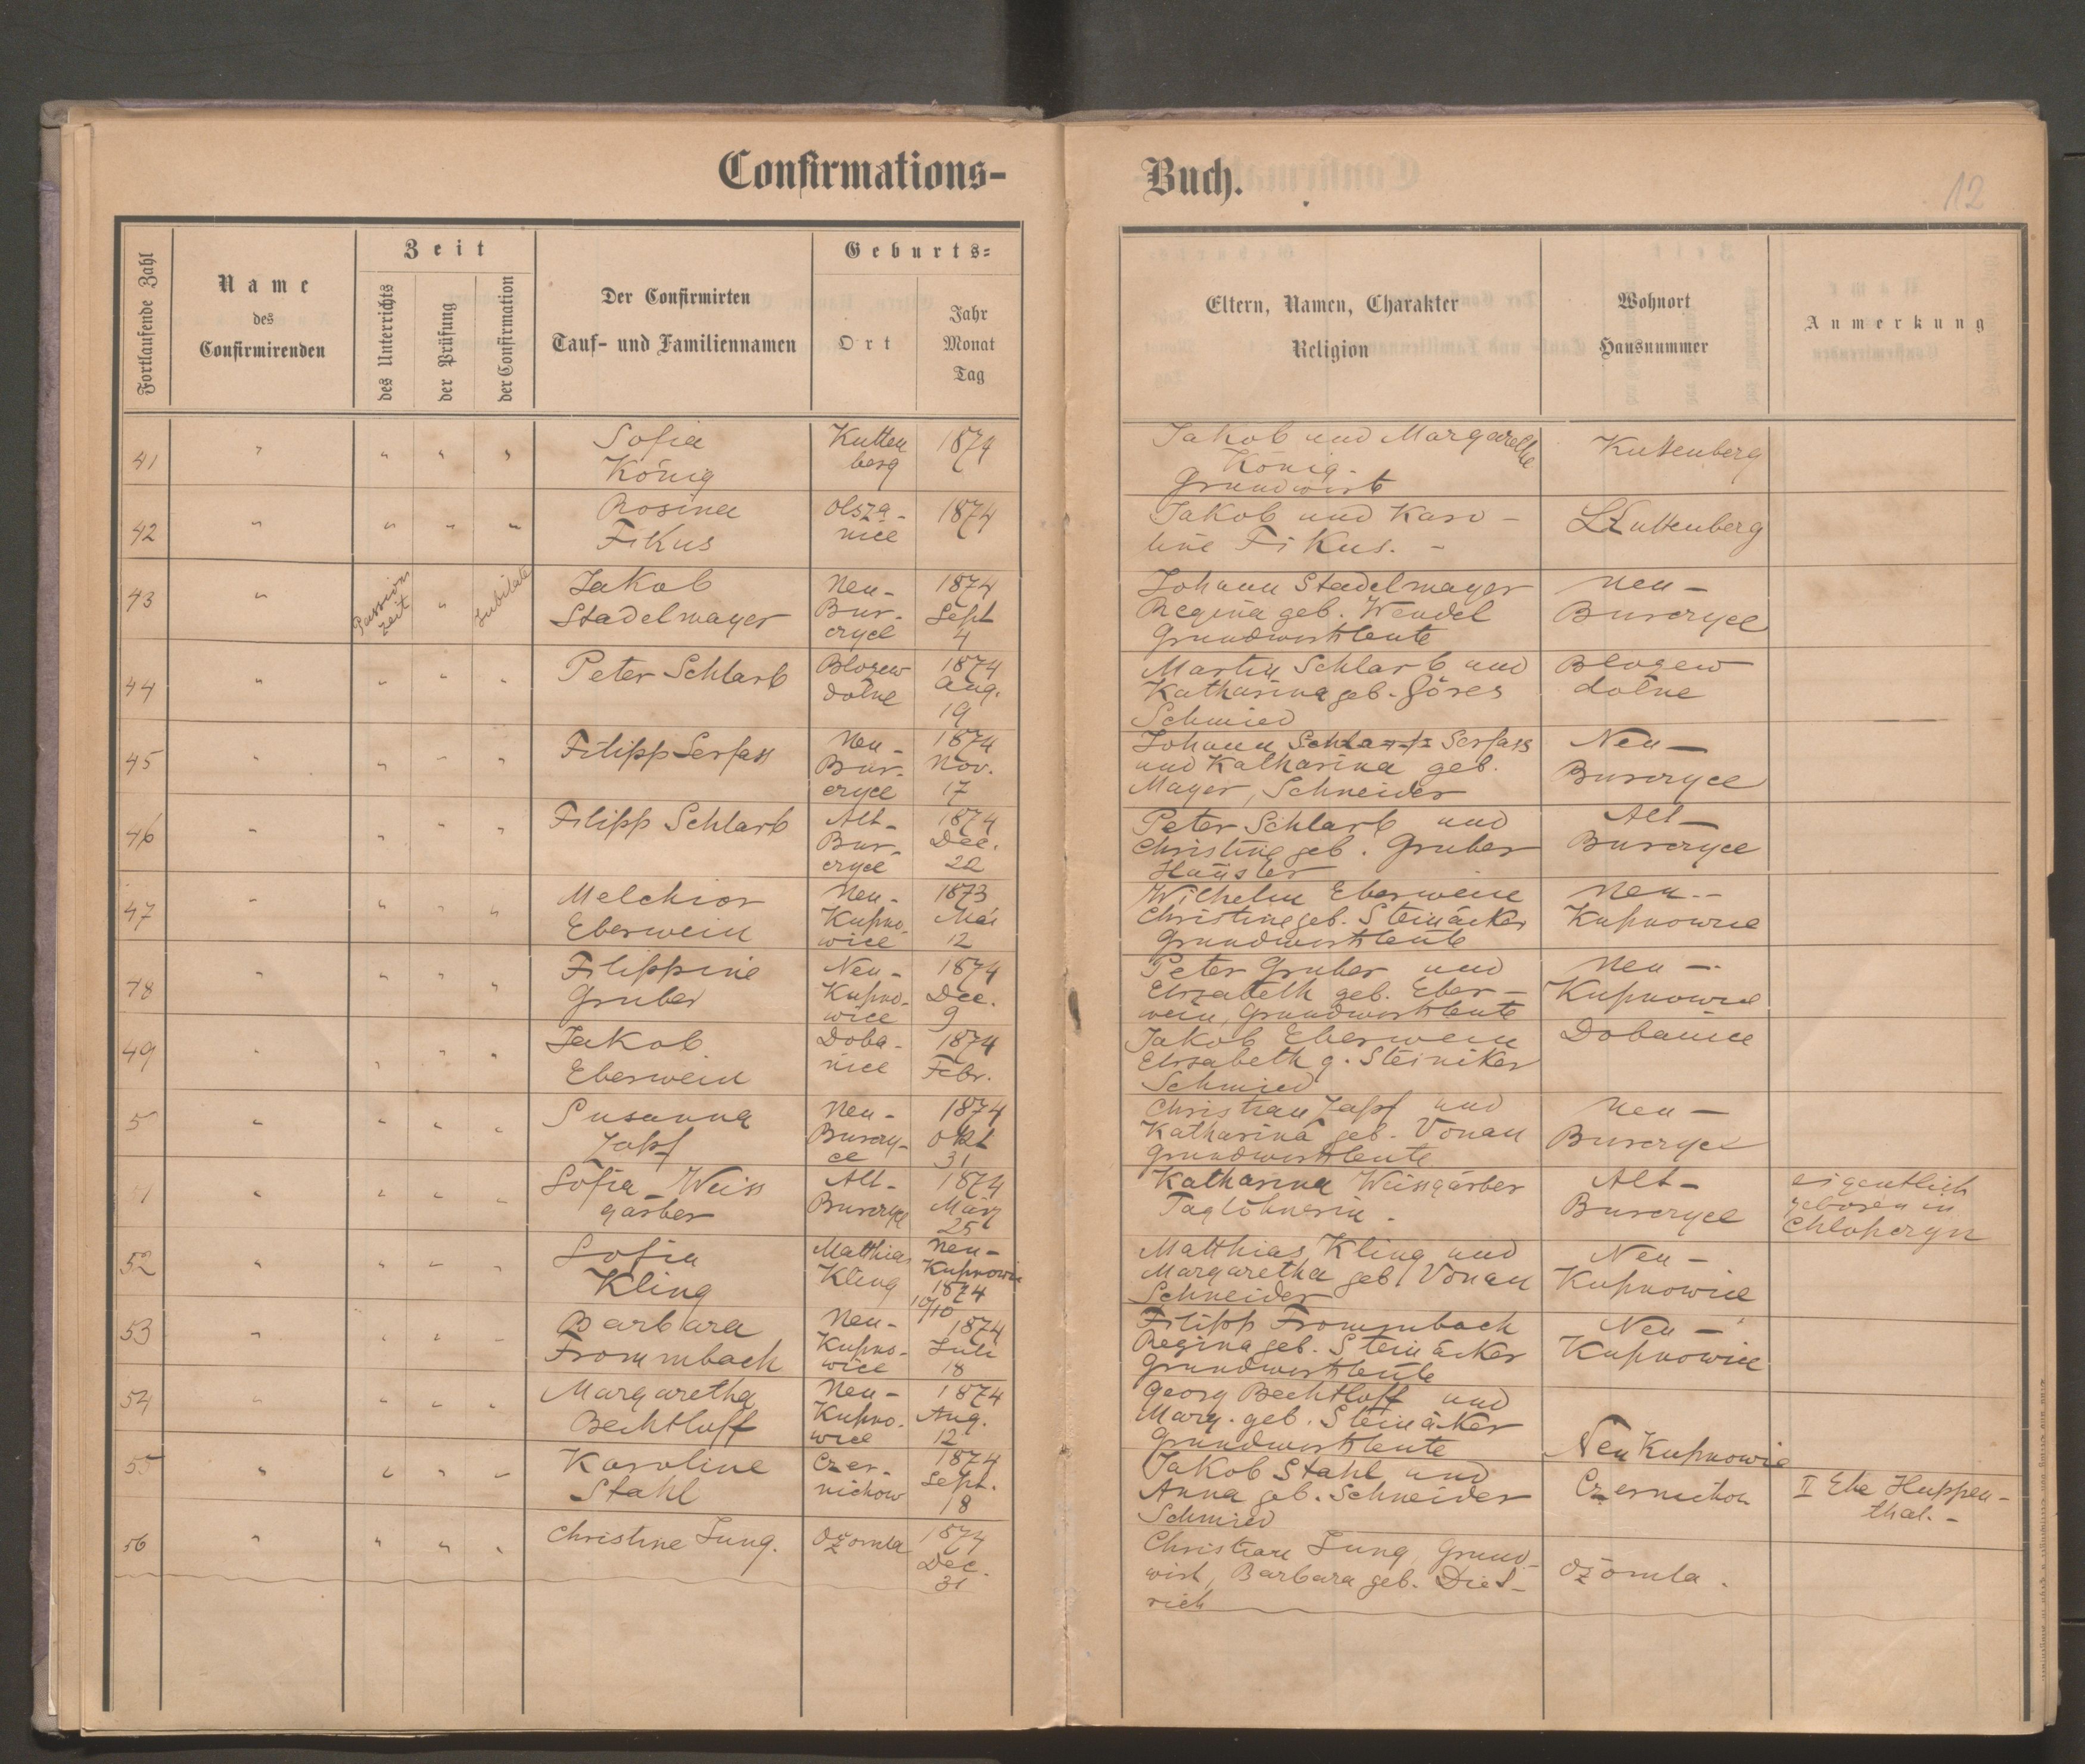 Confirmations-
Buch.
12
Fortlaufende Zahl
Name
des
Confirmirenden
Zeit
des Unterrichts
der Prüfung
der Confirmation
Der Confirmirten
Tauf- und Familiennamen
Geburts-
Ort
Jahr
Monat
Tag
Eltern, Namen, Charakter
Religion
Wohnort
Hausnummer
Anmerkung
41 " " " " Sofia König Kuttenberg 1874 Jakob und Margarethe König. Grundwirt Kuttenberg
42 " " " " Rosina Fikus Olszanice 1874 Jakob und Karoline Fikus. - Kuttenberg
43 " Passionszeit " Jubilate Jakob Stadelmayer Neu-Burczyce 1874 Sept 4 Johann Stadelmayer Regina geb. Wendel Grundwirtsleute Neu-Burczyce
44 " " " " Peter Schlarb Blozew dolne 1874 Aug. 19 Martin Schlarb und Katharina geb. Göres Schmied Blozew dolne
45 " " " " Filipp Serfass Neu-Burczyce 1874 Nov. 17 Johann Serfass und Katharina geb. Mayer, Schneider Neu-Burczyce
46 " " " " Filipp Schlarb Alt-Burczyce 1874 Dec. 22 Peter Schlarb und Christine geb. Gruber Häusler Alt-Burczyce
47 " " " " Melchior Eberwein Neu-Kupnowice 1873 Mai 12 Wilhelm Eberwein Christine geb. Steinäcker Grundwirtsleute Neu-Kupnowice
48 " " " " Filippine Gruber Neu-Kupnowice 1874 Dec. 9 Peter Gruber und Elisabeth geb. Eberwein, Grundwirtsleute Neu-Kupnowice
49 " " " " Jakob Eberwein Dobanice 1874 Febr. Jakob Eberwein Elisabeth g. Steiniker Schmied Dobanice
5 " " " " Susanna Zapf Neu-Burczyce 1874 Okt 31 Christian Zapf und Katharina geb. Vonau Grundwirtsleute Neu-Burczyce
51 " " " " Sofia Weissgärber Alt-Burczyce 1874 März 25 Katharina Weissgärber Taglöhnerin. Alt-Burczyce eigentlich geboren in Chlopczyn
52 " " " " Sofia Kling Matthias Kling Neu-Kupnowice 1874 10/10 Matthias Kling und Margaretha geb. Vonau Schneider Neu-Kupnowice
53 " " " " Barbara Frommbach Neu-Kupnowice 1874 Juli 18 Filipp Frommbach Regina geb. Steinäcker Grundwirtsleute Neu-Kupnowice
54 " " " " Margaretha Bechtloff Neu-Kupnowice 1874 Aug. 12 Georg Bechtloff und Marg. geb. Steinäker Grundwirtsleute Neu Kupnowice
55 " " " " Karoline Stahl Czernichow 1874 Sept. 18 Jakob Stahl und Anna geb. Schneider Schmied Czernichow II Ehe Huppenthal. -
56 " " " " Christine Jung. Ozomla 1874 Dec. 31 Christian Jung, Grundwirt, Barbara geb. Dietrich Ozomla.